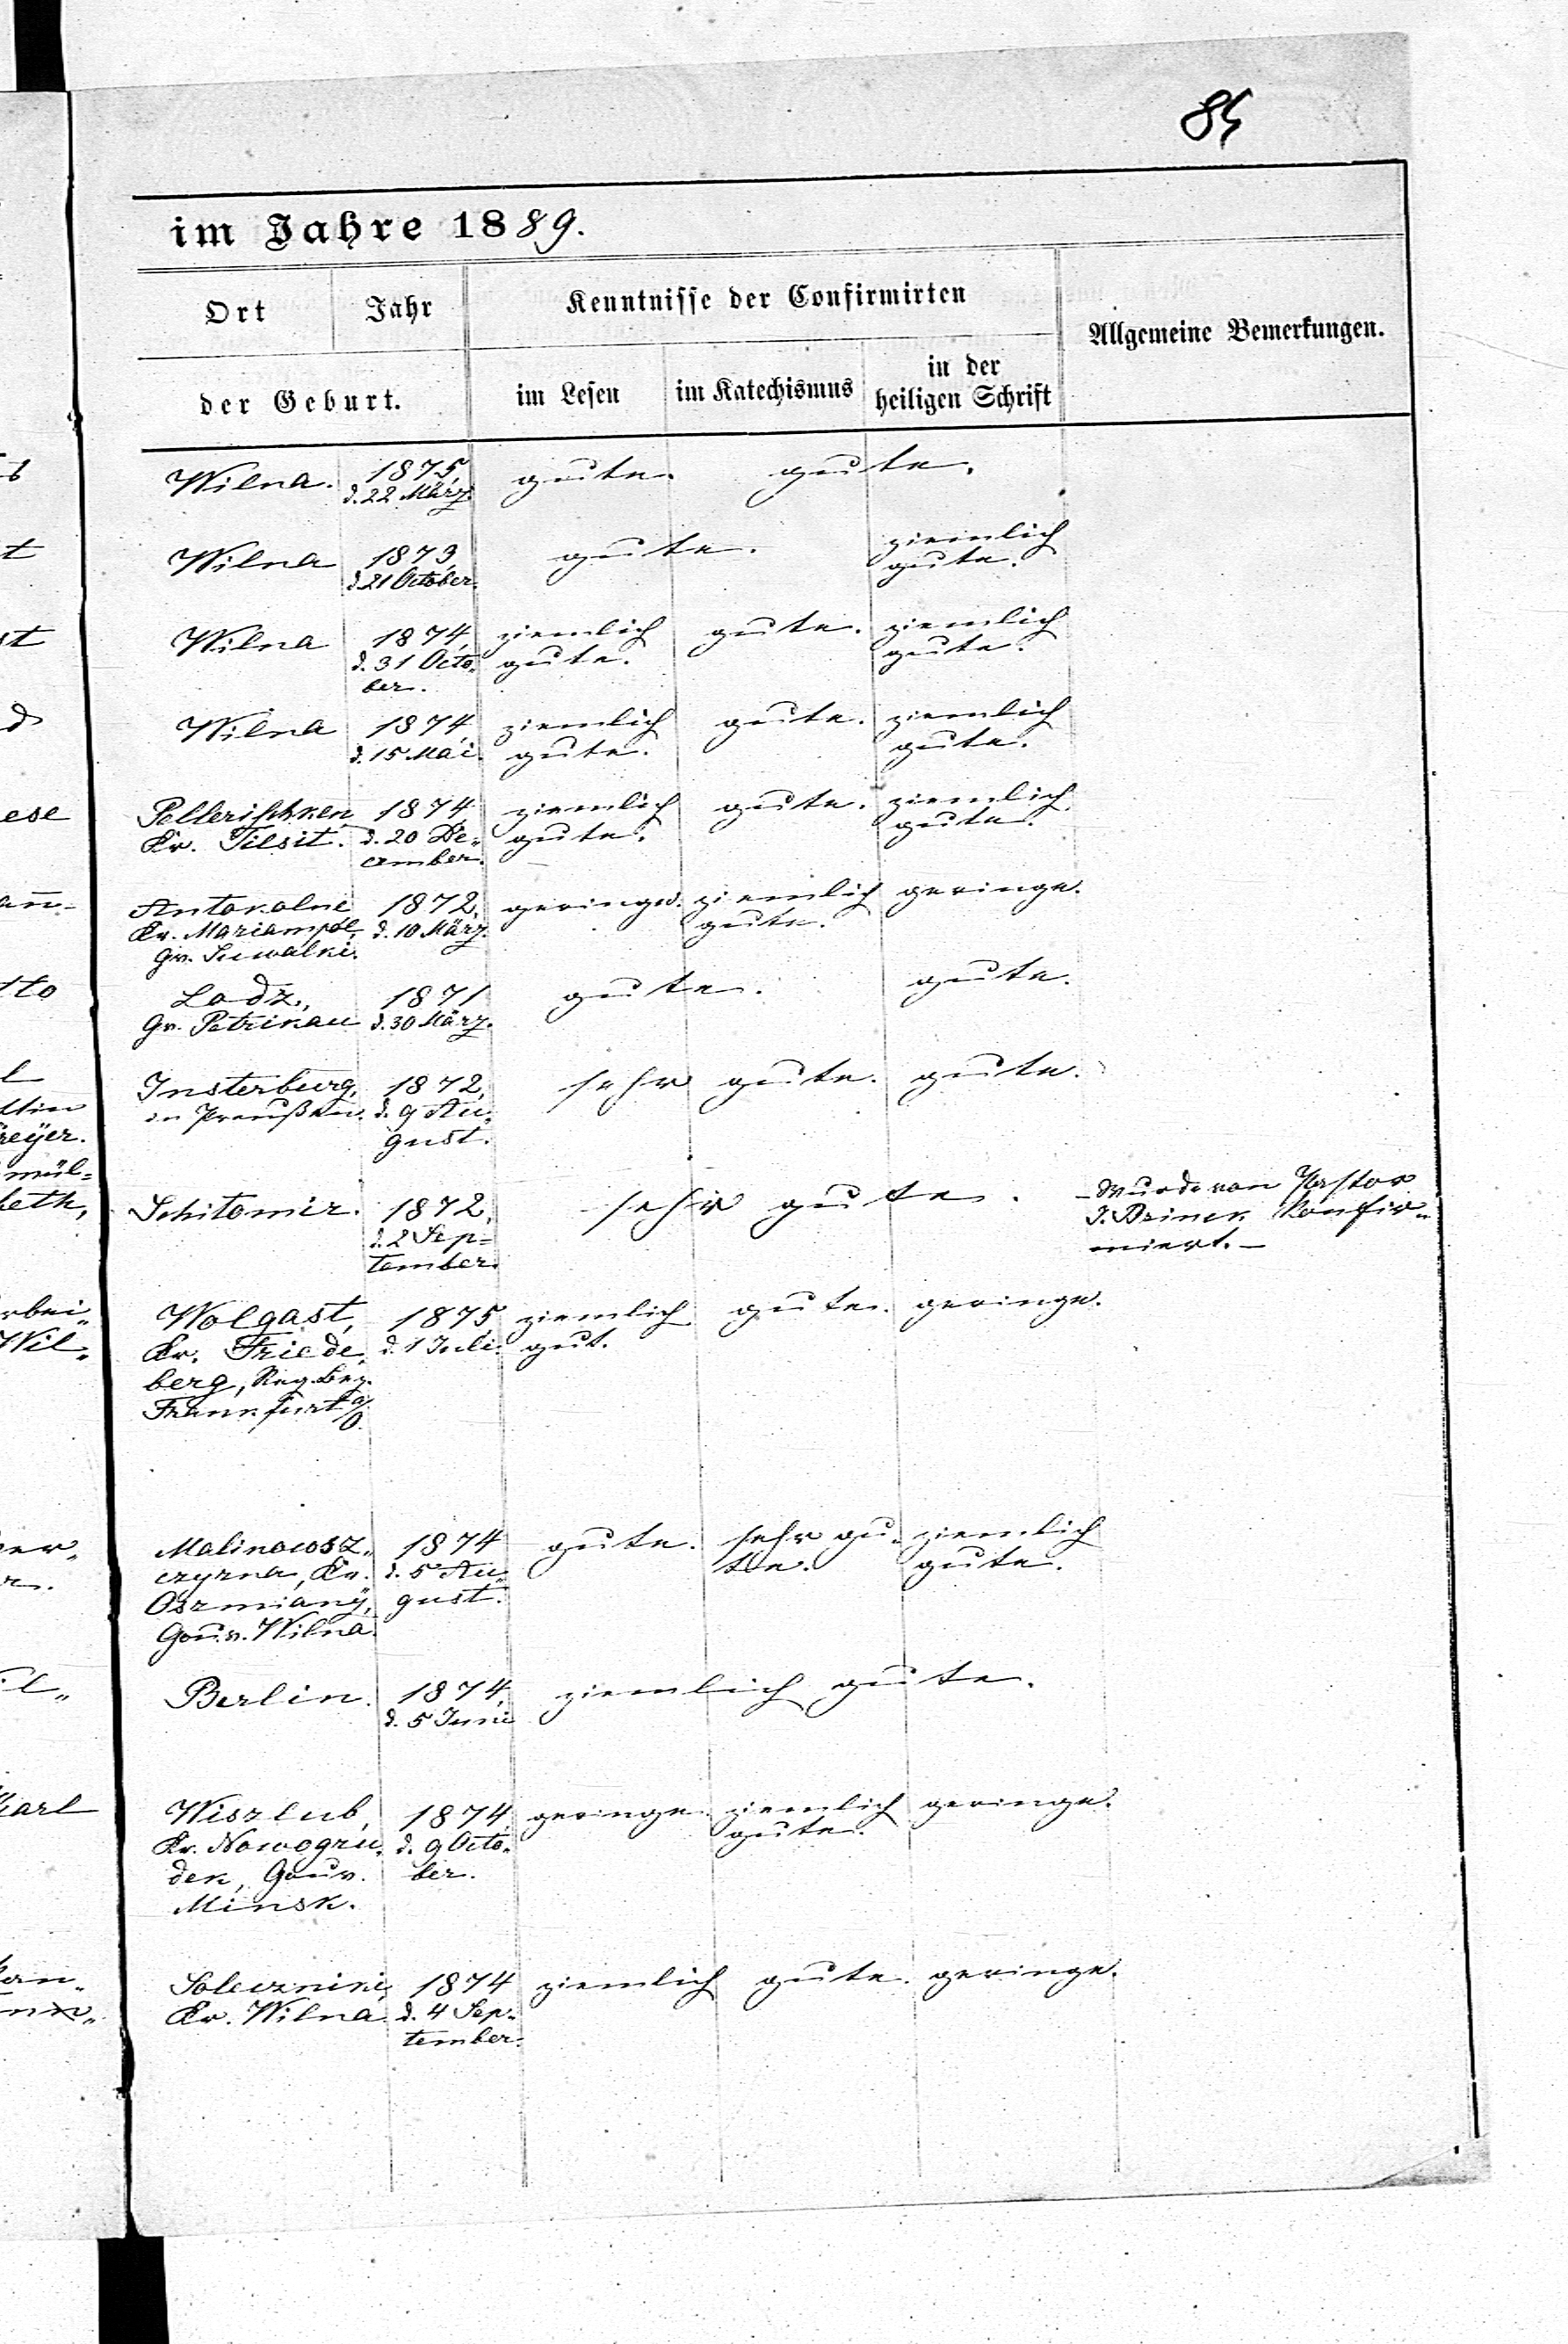 85
im Jahre 1889.
Ort Jahr Kenntnisse der Confirmirten Allgemeine Bemerkungen.
der Geburt. im Lesen im Katechismus in der heiligen Schrift
Wilna. 1875, gute. gute.
d. 22 März.
Wilna 1873, gute. ziemlich
d. 21 October. gute.
Wilna 1874, ziemlich gute. ziemlich
d. 31 Octo- gute. gute.
ber.
Wilna 1874, ziemlich gute. ziemlich
d. 15 Mai. gute. gute.
1874, ziemlich gute. ziemlich
Kr. Tilsit. d. 20 De- gute. gute.
cember.
Antokolne 1872, geringe. ziemlich geringe.
Kr. Mariampol, d. 10 März. gute.
Gv. Suwalki.
Lodz, 1871 gute. gute.
Gv. Petrikau d. 30 März.
Insterburg, 1872, sehr gute. gute.
in Preußen. d. 9 Au-
gust.
Schitomir. 1872, sehr gute. – Wurde von Pastor
d. 2 Sep- J. konfir-
tember. miert. –
Wolgast, 1875, ziemlich gute. geringe.
Kr. Friede- d. 1 Juli. gut.
berg, Reg. Bez.
Frankfurt a/O.
Malinowsz- 1874 gute. sehr gu- ziemlich
czyzna, Kr. d. 5 Au- te. gute.
Oszmiany, gust.
Gouv. Wilna.
Berlin. 1874, ziemlich gute.
d. 5 Juni
Wiszlub, 1874, geringe. ziemlich geringe.
Kr. Nowogru- d. 9 Octo- gute.
dek, Gouv. ber.
Minsk.
Soleczniki, 1874 ziemlich gute. geringe.
Kr. Wilna. d. 4 Sep-
tember.